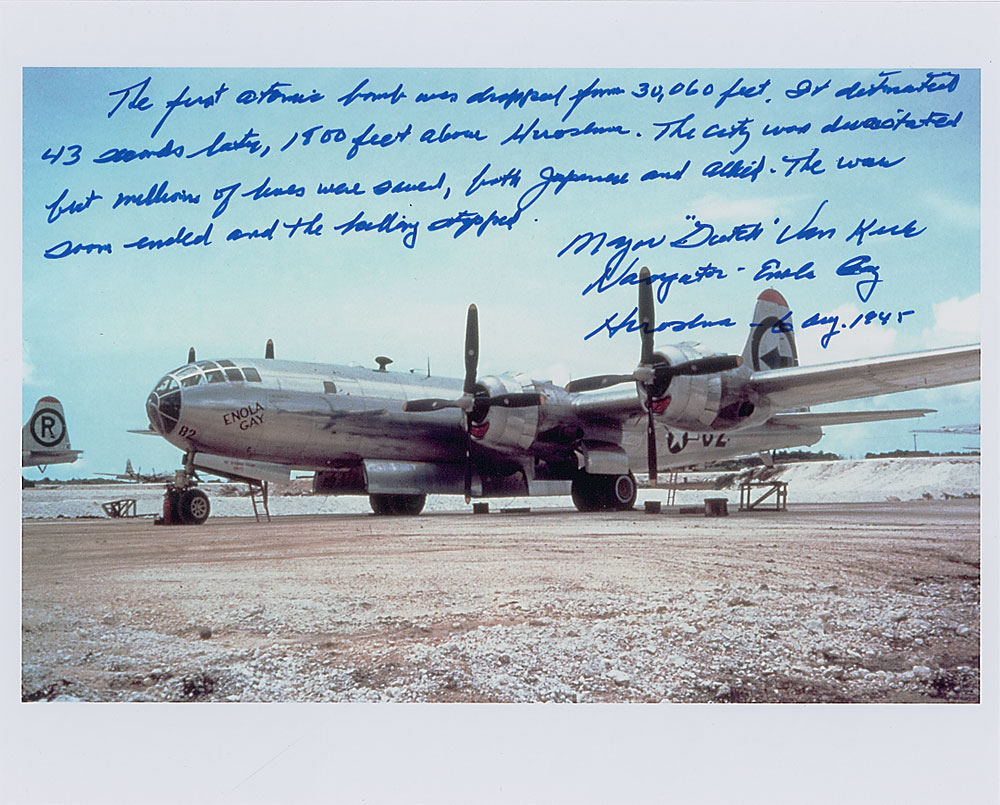 The first atomic bomb was dropped from 30,060 feet. It detonated
43 seconds later, 1800 feet above Hiroshima. The city was devastated
but millions of lives were saved, both Japanese and Allied. The war
soon ended and the killing stopped.
Major "Dutch" Van Kirk
Navigator - Enola Gay
Hiroshima - 6 Aug. 1945
ENOLA
GAY
82
R
82